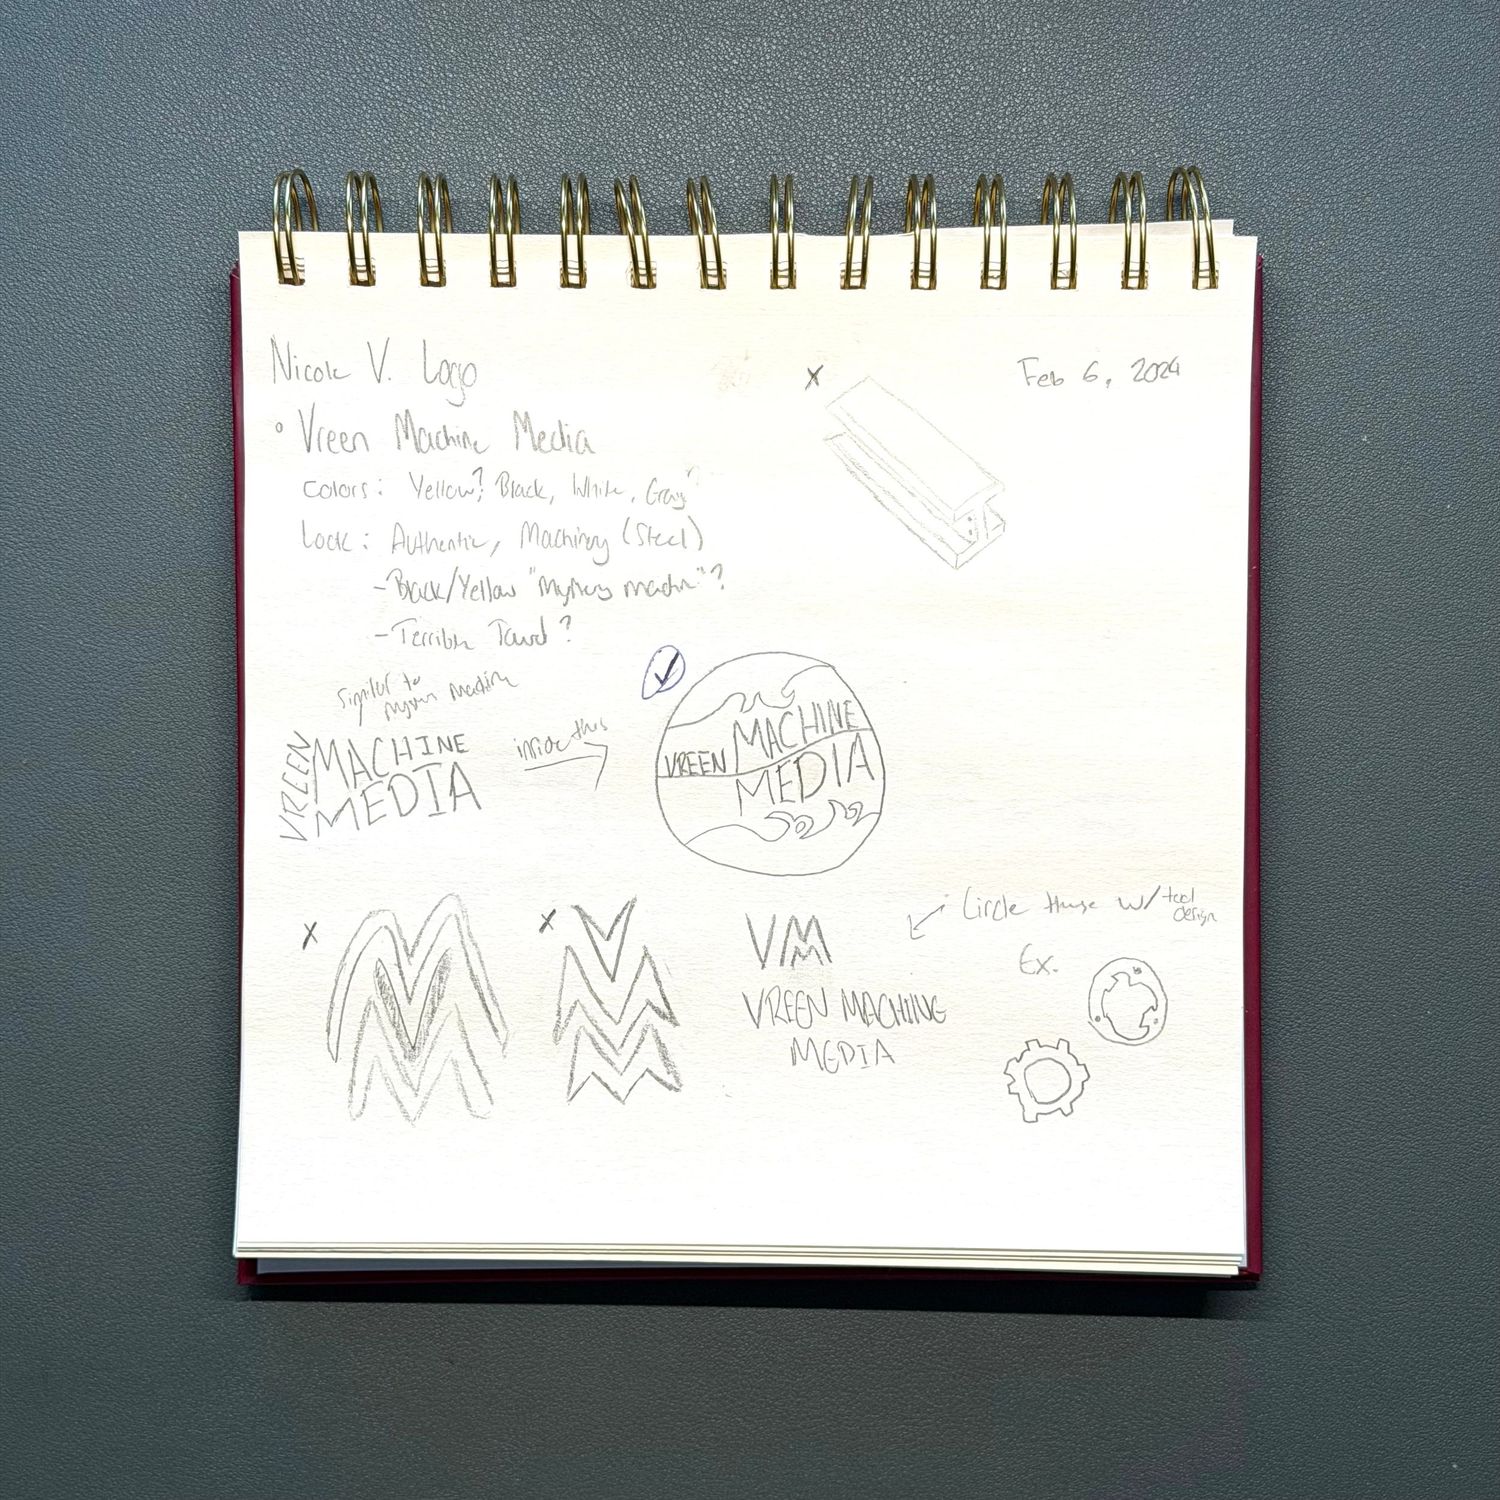 Nicole V. Logo
Feb 6, 2024
Vreen Machine Media
Colors: Yellow?, Black, White, Gray?
Look: Authentic, Machinery (Steel)
- Black/Yellow "mystery machine"?
- Terrible Towel?
Similar to
mystery machine
VREEN MACHINE
MEDIA
inside this
VREEN MACHINE
MEDIA
Circle w/ tool
design
Ex.
VMM
VREEN MACHINE
MEDIA